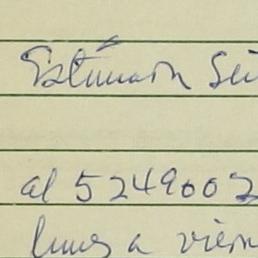 Estimado Se
al 5249002
lunes a viern